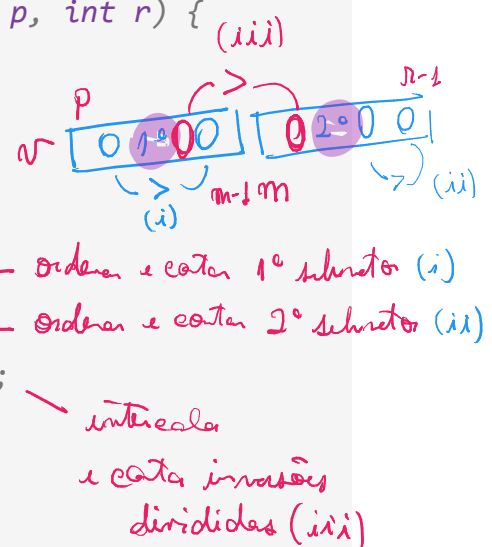 p, int r) {
(iii)
>
p
r-1
v 1º 2º
> m-1 m > (ii)
(i)
- ordenar e contar 1º subvetor (i)
- ordenar e contar 2º subvetor (ii)
;
intercala
e cota invasões
divididas (iii)